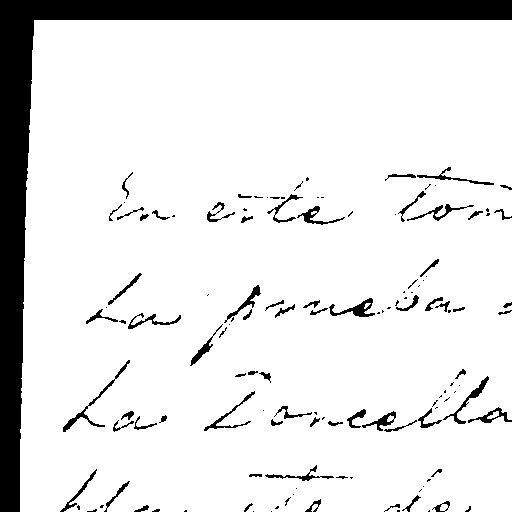 En este tom
La prueba
La Doncella
de